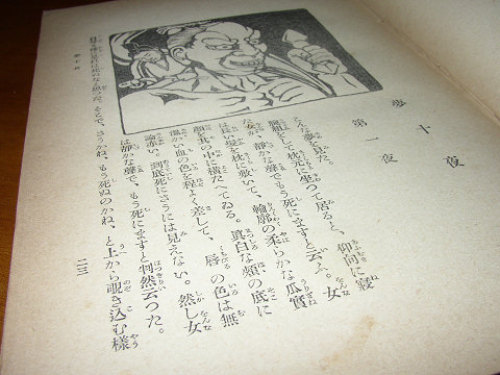 夢十夜
第一夜
こんな夢を見た。
腕組をして枕元に坐つて居ると、仰向に寝
た女が、靜かな聲でもう死にますと云ふ。女
は長い髪を枕に敷いて、輪廓の柔らかな瓜實
顔を其の中に横たへてゐる。眞白な頬の底に
温かい血の色が程よく差して、唇の色は無
論赤い。到底死にさうには見えない。然し女
は靜かな聲で、もう死にますと判然云つた。
自分も確に是れは死ぬなと思つた。そこで、さうかね、もう死ぬのかね、と上から覗き込む樣
夢十夜
二三